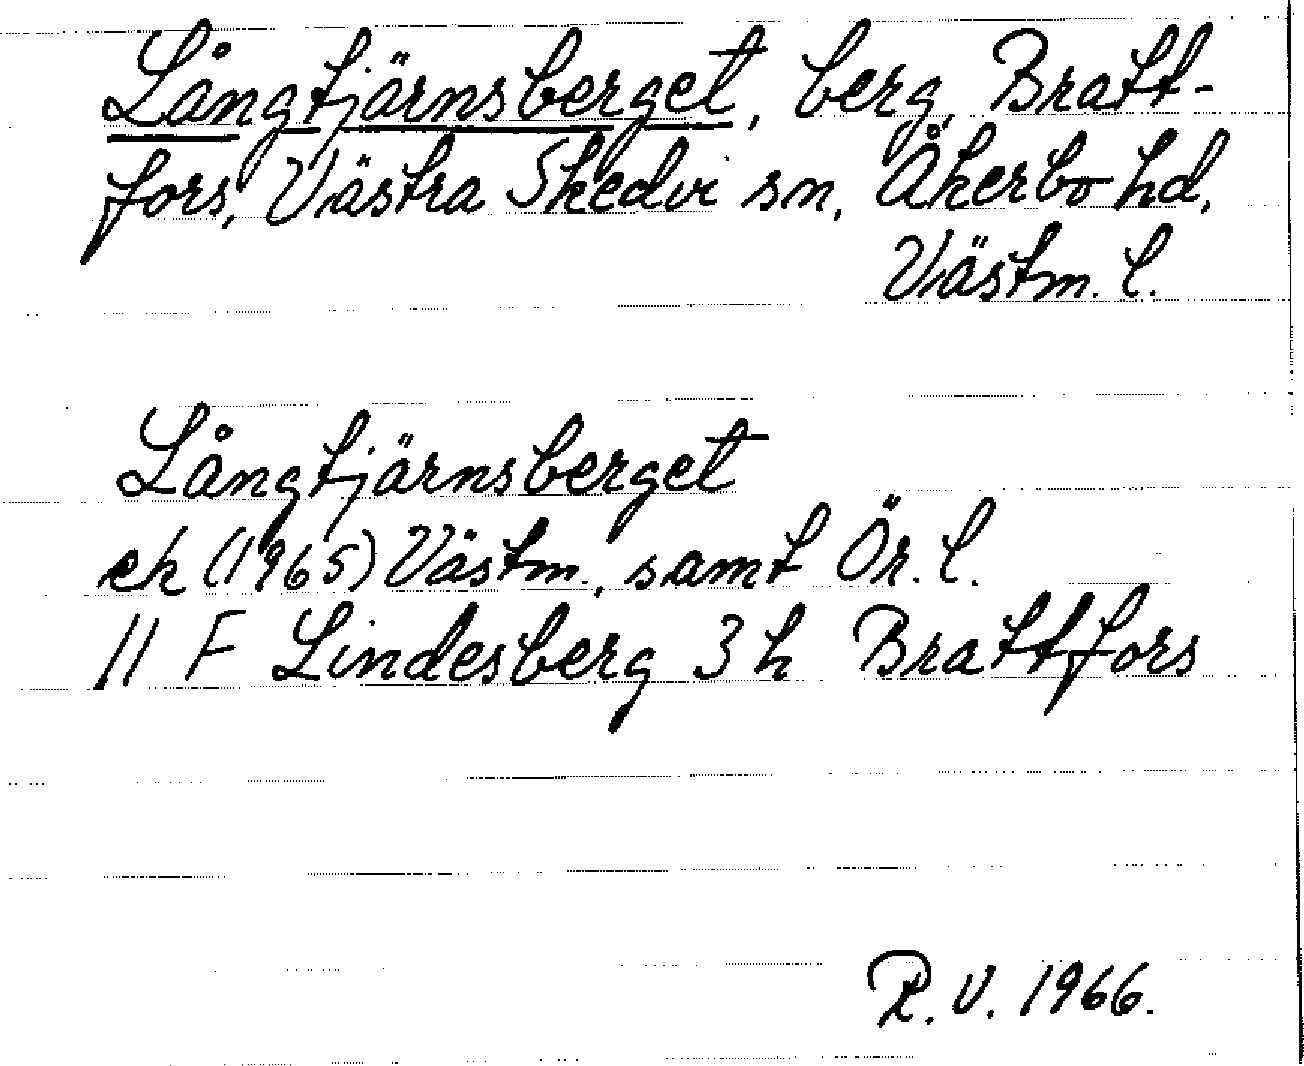 Långtjärnsberget, berg, Bratt-
fors, Västra Skedvi sn, Åkerbo hd,
Västm. l.
Långtjärnsberget
ek (1965) Västm., samt Ör. l.
11 F Lindesberg 3 h Brattfors
R. V. 1966.